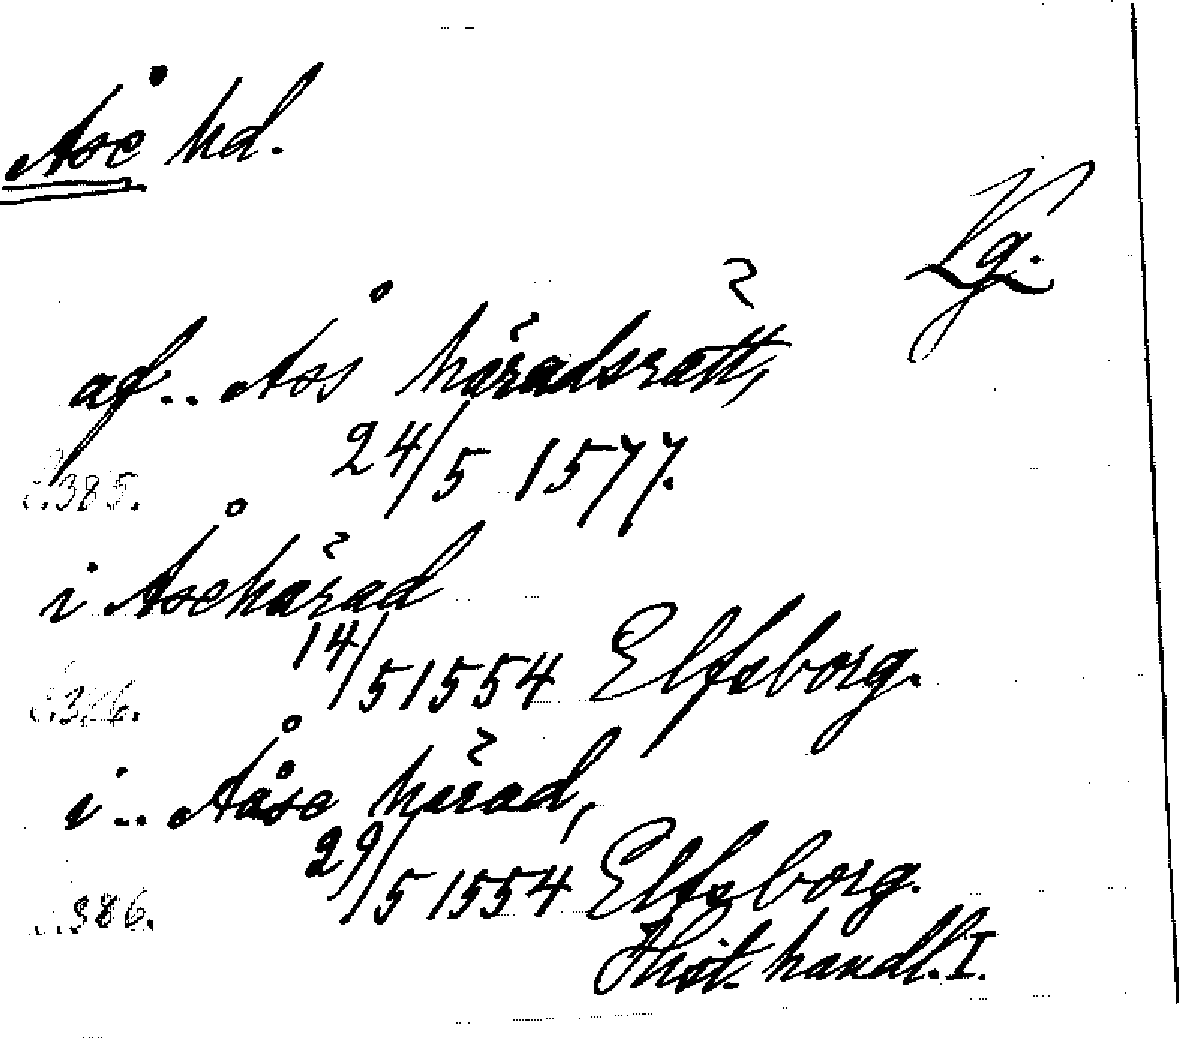 Åse hd.
Vg.
af.. Åss häradsrätt,
24/5 1577.
s. 385.
i Åsehärad
14/5 1554 Elfsborg.
s. 386.
i.. Aåse härad,
29/5 1554 Elfsborg.
s. 386.
Hist. handl. I.